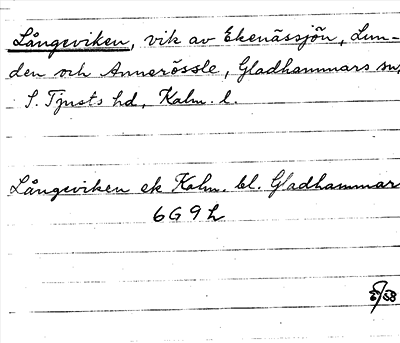 Långeviken, vik av Ekenässjön, Lun-
den och Annerössle, Gladhammars sn,
S. Tjusts hd, Kalm. l.
Långeviken ek Kalm. bl. Gladhammar
6G9h